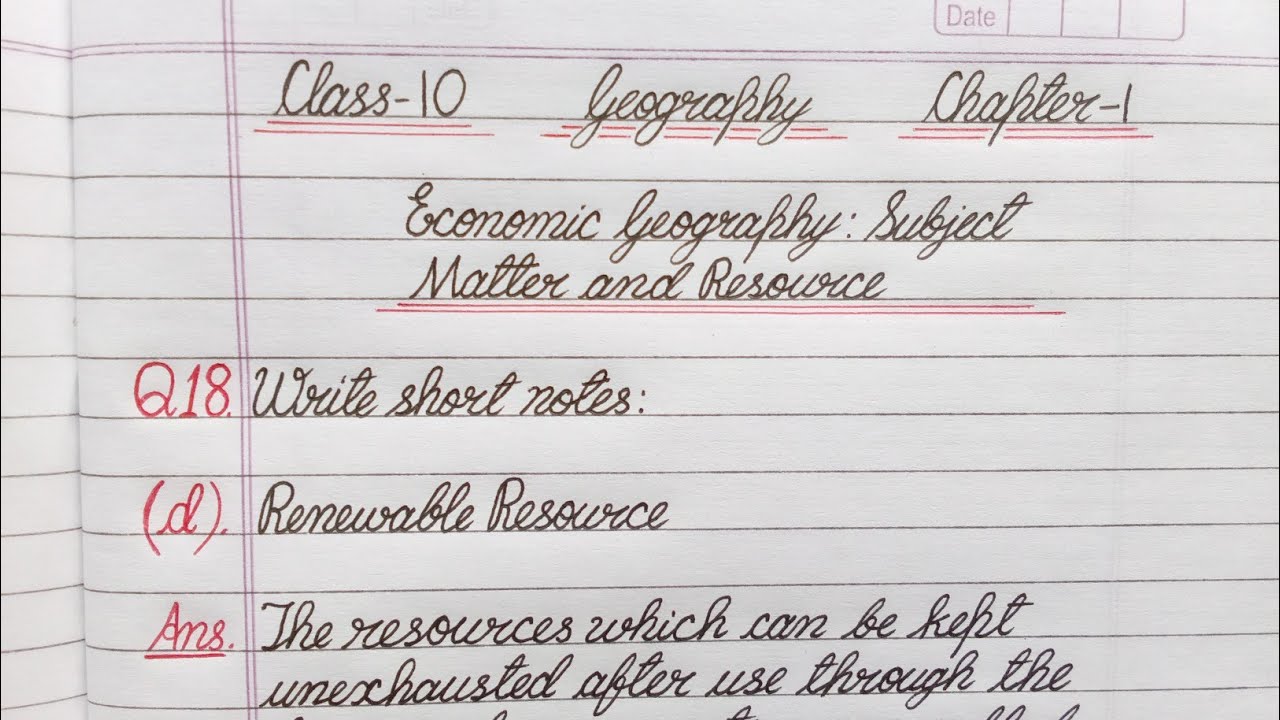 Date
Class-10 Geography Chapter-1
Economic Geography: Subject
Matter and Resource
Q18. Write short notes:
(d). Renewable Resource
Ans. The resources which can be kept
unexhausted after use through the